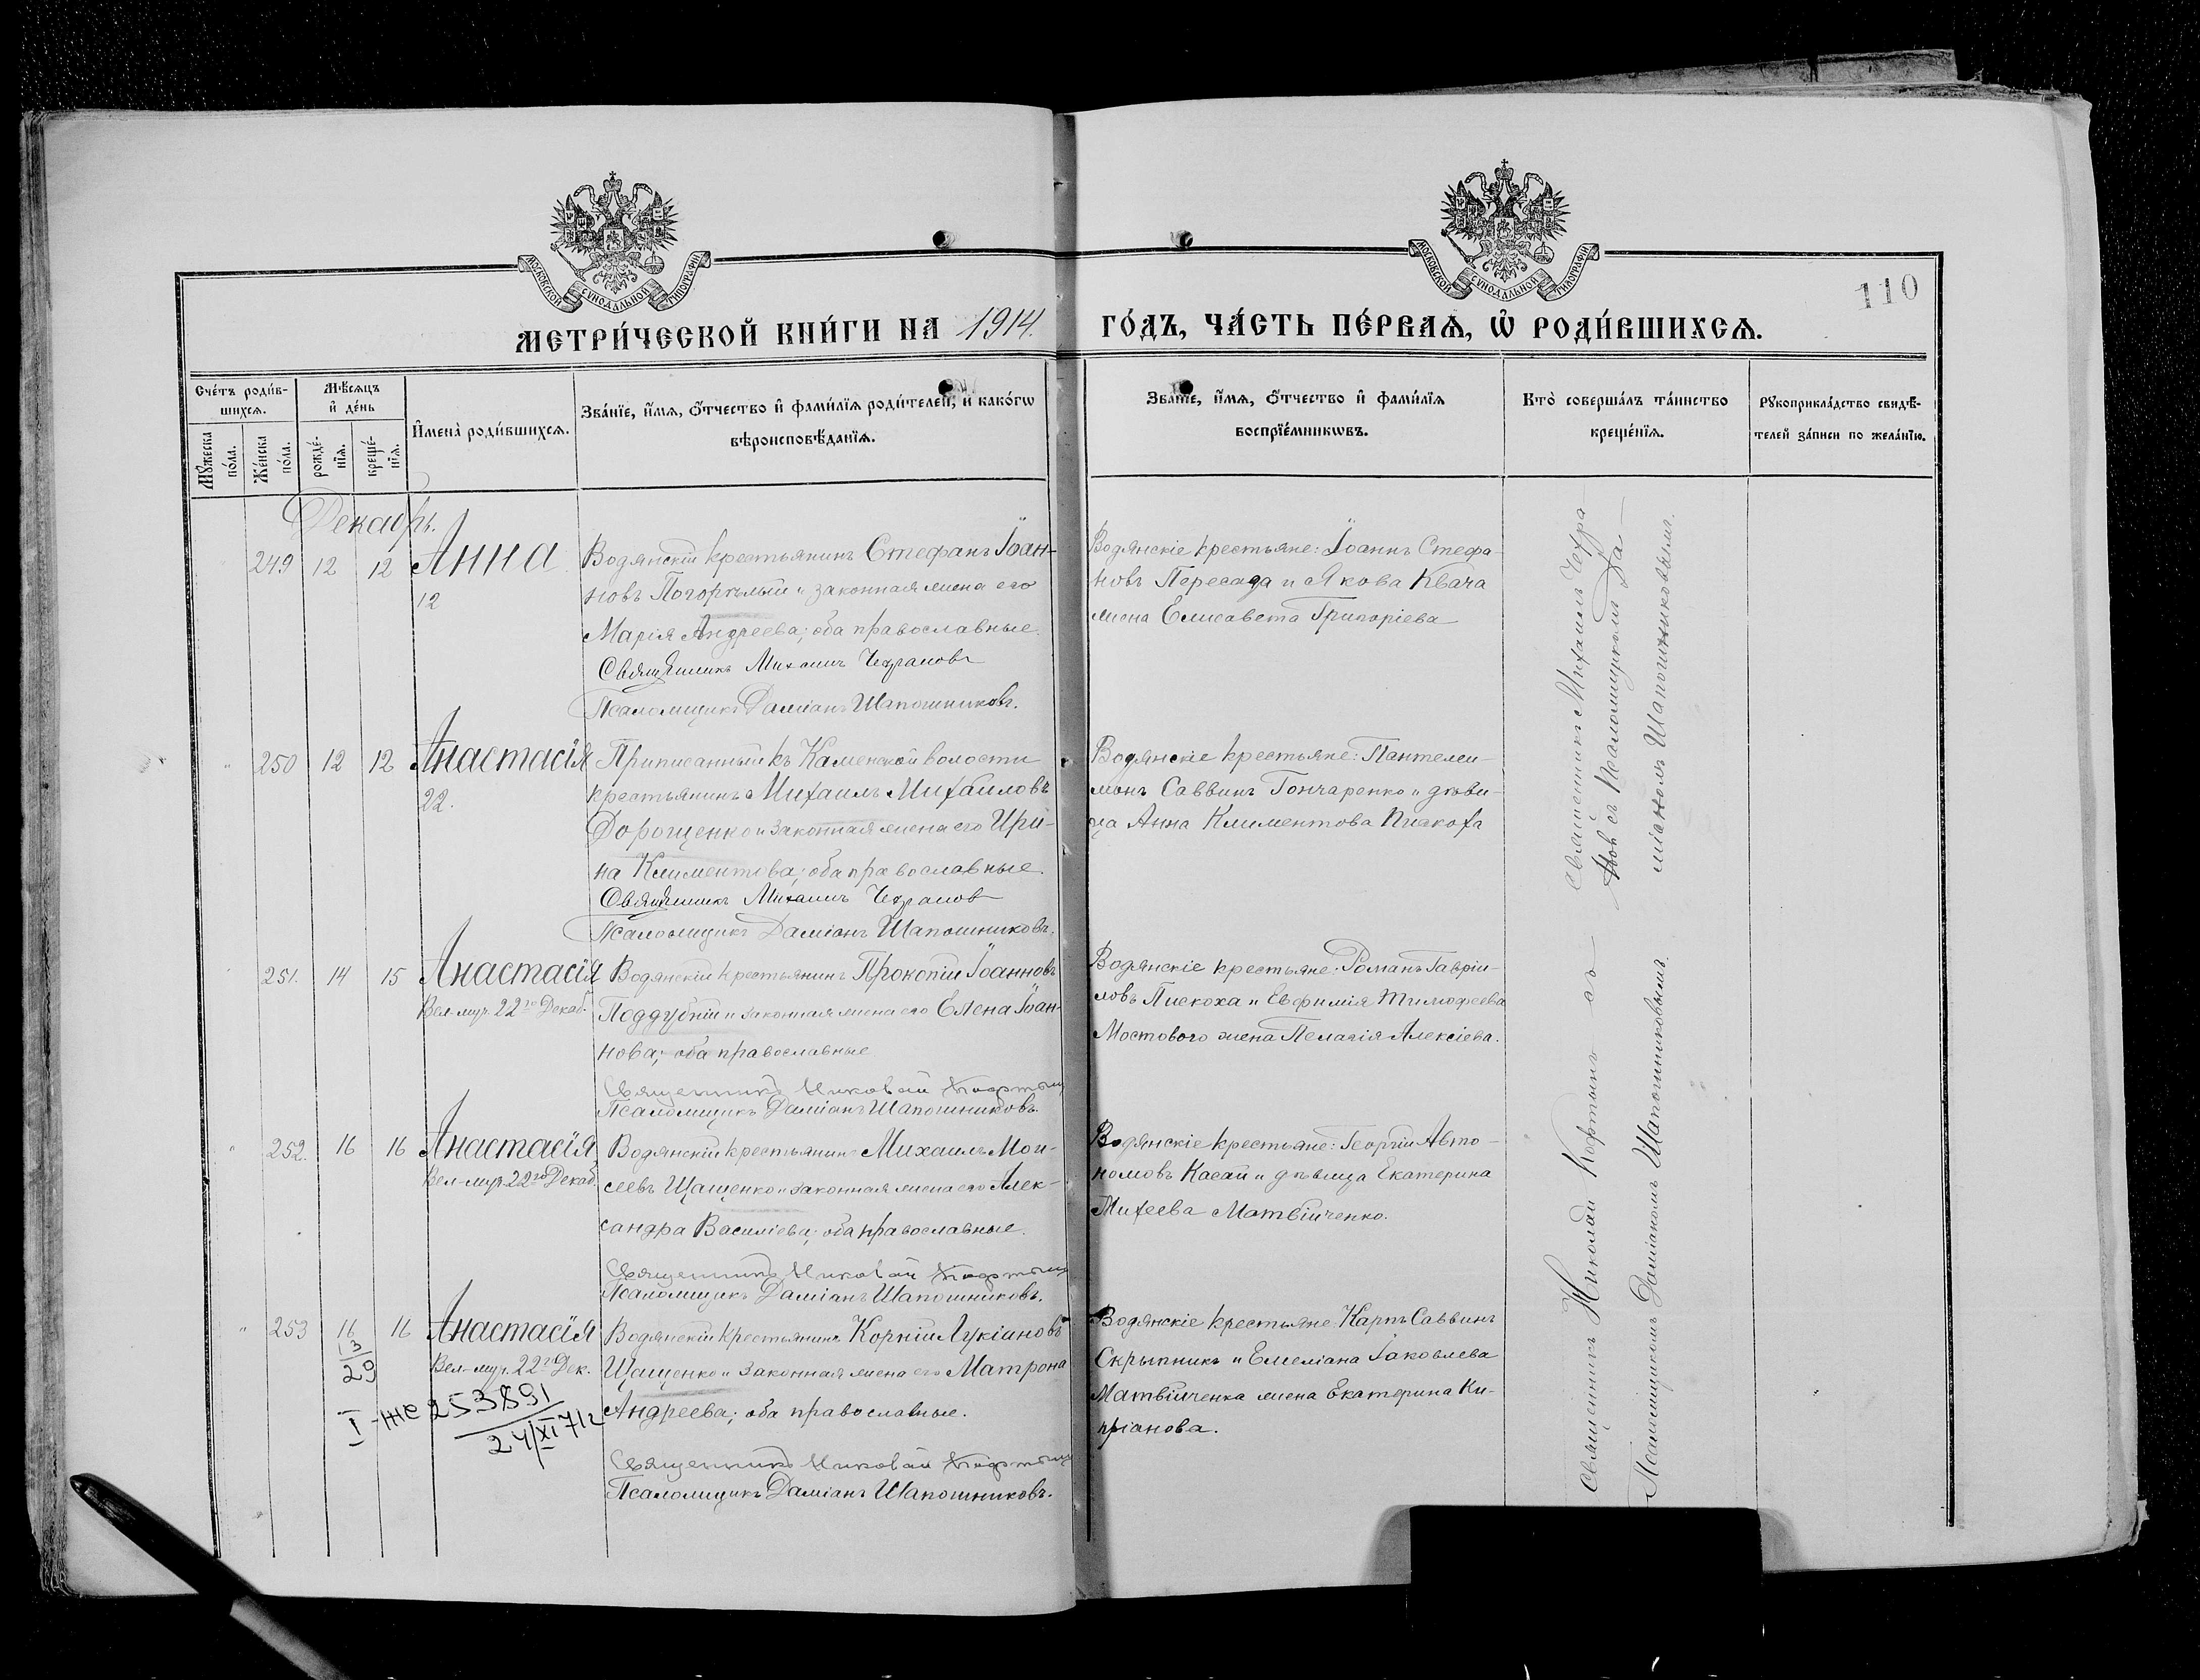 МОСКОВСКОЙ СУНОДАЛЬНОЙ ТИПОГРАФІИ
МОСКОВСКОЙ СУНОДАЛЬНОЙ ТИПОГРАФІИ
110
МЕТРИ́ЧЕСКОЙ КНИ́ГИ НА 1914. ГО́ДЪ, ЧА́СТЬ ПЕ́РВАѦ, Ѡ҆ РОДИ́ВШИХСѦ.
Сче́тъ роди́в-
шихсѧ.
Мꙋжеска по́ла.
Же́нска по́ла.
Мѣ́сѧцъ
и҆ де́нь
рожде́-
нїѧ.
креще́-
нїѧ.
И҆мена̀ роди́вшихсѧ.
Зва́нїе, и҆́мѧ, ѻ҆́тчество и҆ фами́лїѧ роди́телей, и҆ како́гѡ
вѣроисповѣ́данїѧ.
Зва́нїе, и҆́мѧ, ѻ҆́тчество и҆ фами́лїѧ
воспрїе́мникѡвъ.
Кто̀ соверша́лъ та́инство
креще́нїѧ.
Рꙋкоприкла́дство свидѣ́-
телей за́писи по жела́нїю.
Декабрь.
249 12 12 Анна
12
Водянскій крестьянинъ Стефанъ Іоан-
новъ Погорѣлый и законная жена его
Марія Андреева; оба православные.
Священникъ Михаилъ Чехрановъ
Псаломщикъ Даміанъ Шапошниковъ.
Водянскіе крестьяне: Іоаннъ Стефа-
новъ Пересада и Якова Квача
жена Елисавета Григоріева
" 250 12 12 Анастасія
22.
Приписанный къ Каменской волости
крестьянинъ Михаилъ Михаиловъ
Дорощенко и законная жена его Ири-
на Климентова; оба православные.
Священникъ Михаилъ Чехранов
Псаломщикъ Даміанъ Шапошниковъ.
Водянскіе крестьяне: Пантелеи-
монъ Саввинъ Гончаренко и дѣви-
ца Анна Климентова
Священникъ Михаилъ Чехра-
новъ съ Псаломщикомъ Да-
міаномъ Шапошниковымъ.
" 251. 14 15 Анастасія
Вел-муч. 22го Декаб.
Водянскій крестьянинъ Прокопій Іоанновъ
Поддубній и законная жена его Елена Іоан-
нова; оба православные
Священникъ Николай Кофтынъ
Псаломщикъ Даміанъ Шапошниковъ.
Водянскіе крестьяне: Романъ Гавріи-
ловъ Пискоха и Евфимія Тимофеева
Мостового жена Пелагія Алексіева.
" 252. 16 16 Анастасія
Вел-муч. 22го Декаб.
Водянскій крестьянинъ Михаилъ Мои-
сеевъ Щащенко и законная жена его Алек-
сандра Василіева; оба православные.
Священникъ Николай Кофтынъ
Псаломщикъ Даміанъ Шапошниковъ.
Водянскіе крестьяне: Георгій Авто-
номовъ Касай и дѣвица Екатерина
Михеева Матвійченко.
" 253 16 16 Анастасія
Вел-муч. 22го Дек.
13
29
I-ЖС 253891
24/XI 71г
Водянскій крестьянинъ Корній Лукіановъ
Щащенко и законная жена его Матрона
Андреева; оба православные.
Священникъ Николай Кофтынъ
Псаломщикъ Даміанъ Шапошниковъ.
Водянскіе крестьяне: Карпъ Саввинъ
Скрыпникъ и Емеліана Іаковлева
Матвійченка жена Екатерина Ки-
пріанова.
Священникъ Николай Кофтынъ съ
Псаломщикомъ Даміаномъ Шапошниковымъ.